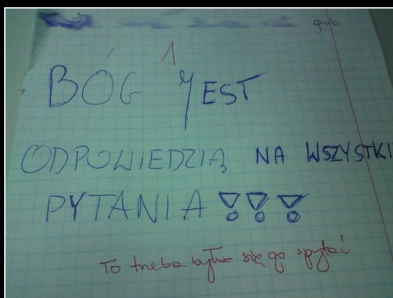 1
BÓG JEST
ODPOWIEDZIĄ NA WSZYSTKI
PYTANIA !!!
To trzeba było się go spytać